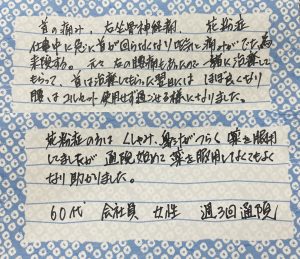 首の痛み、右坐骨神経痛、花粉症
仕事中に急に首が回らなくなり咳きに痛みがでた為
来院する。元々右の腰痛もあったので一緒に治療して
もらって、首は治療してもらった翌日にはほぼ良くなり
腰はコルセット使用せず過ごせる様になりました。
花粉症の方はくしゃみ、鼻汁がつらく薬を服用
していましたが通院始めて薬を服用しなくてもよく
なり助かりました。
60代 会社員 女性 週3回通院